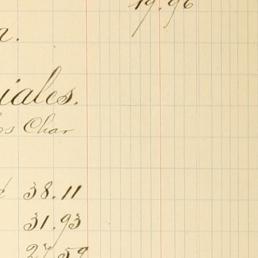 19.96
iales.
Char
38.11
31.93
27.59